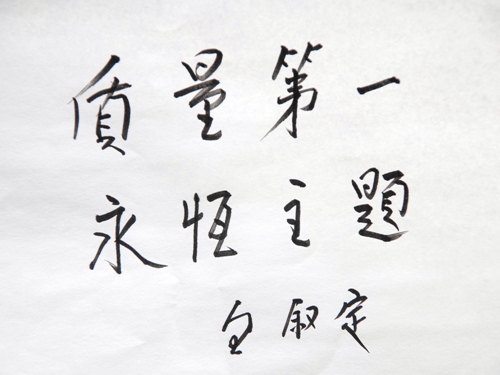 質量第一
永恒主題
包叙定